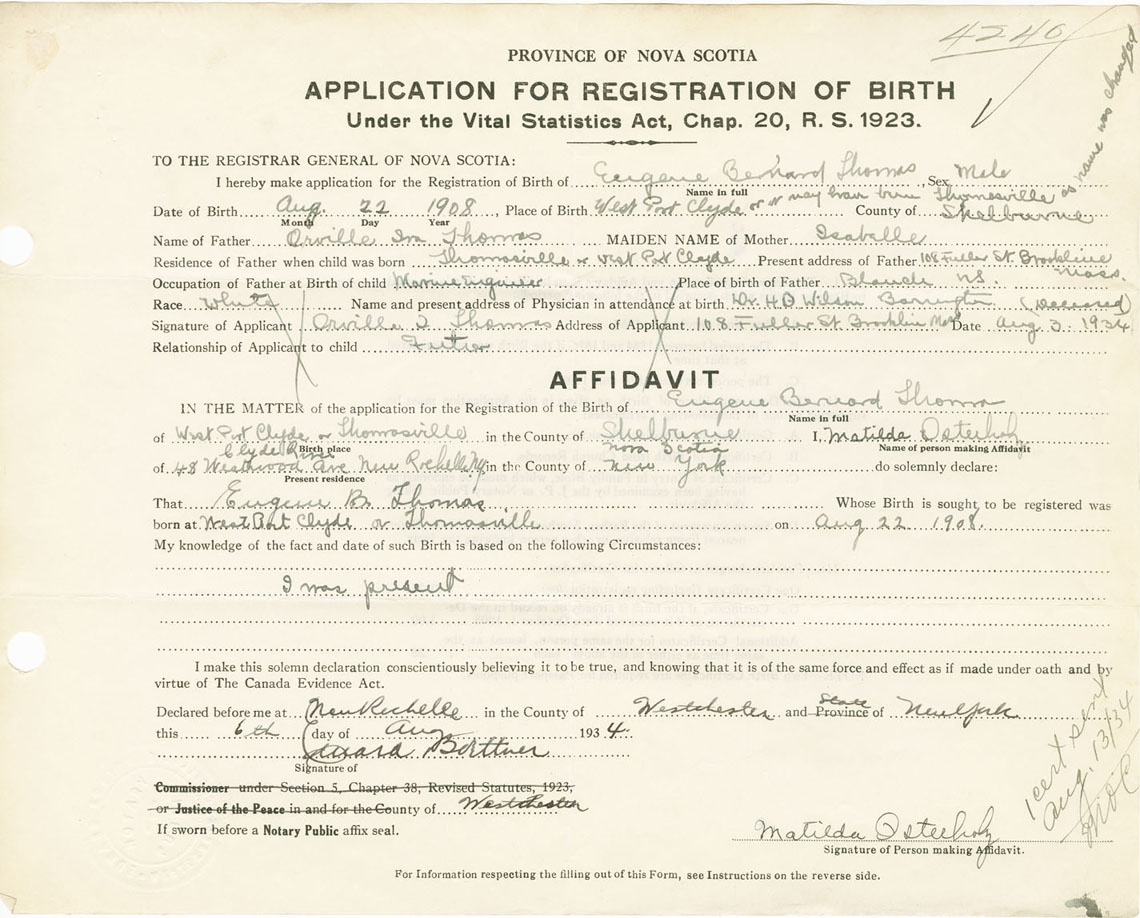 4240
PROVINCE OF NOVA SCOTIA
APPLICATION FOR REGISTRATION OF BIRTH
Under the Vital Statistics Act, Chap. 20, R. S. 1923.
TO THE REGISTRAR GENERAL OF NOVA SCOTIA:
I hereby make application for the Registration of Birth of Eugene Bernard Thomas, Sex Male
Name in full
or it may have been Thomasville as name was changed
Date of Birth Aug. 22 1908, Place of Birth West Port Clyde County of Shelburne
Month Day Year
Name of Father Orville Ira Thomas MAIDEN NAME of Mother Isabelle
Residence of Father when child was born Thomasville or West Port Clyde Present address of Father 108 Fuller St. Brookline Mass.
Occupation of Father at Birth of child Marine Engineer Place of birth of Father Blanche N.S.
Race White Name and present address of Physician in attendance at birth Dr. H B Wilson Barrington (Deceased)
Signature of Applicant Orville I Thomas Address of Applicant 108 Fuller St Brooklin Mass Date Aug 3. 1934
Relationship of Applicant to child Father
AFFIDAVIT
IN THE MATTER of the application for the Registration of the Birth of Eugene Bernard Thomas
Name in full
of West Port Clyde or Thomasville in the County of Shelburne I, Matilda Osterholz
Clyde River Birth place Nova Scotia Name of person making Affidavit
of 48 Westwood Ave New Rochelle NY in the County of New York do solemnly declare:
Present residence
That Eugene B. Thomas Whose Birth is sought to be registered was
born at West Port Clyde or Thomasville on Aug 22 1908.
My knowledge of the fact and date of such Birth is based on the following Circumstances:
I was present
I make this solemn declaration conscientiously believing it to be true, and knowing that it is of the same force and effect as if made under oath and by
virtue of The Canada Evidence Act.
Declared before me at New Rochelle in the County of Westchester and State Province of New York
this 6th day of Aug 1934.
Edward
Signature of
Commissioner under Section 5, Chapter 38, Revised Statutes, 1923,
or Justice of the Peace in and for the County of Westchester
If sworn before a Notary Public affix seal.
1 cert sent
Aug. 13/34
Matilda Osterholz
Signature of Person making Affidavit.
For Information respecting the filling out of this Form, see Instructions on the reverse side.